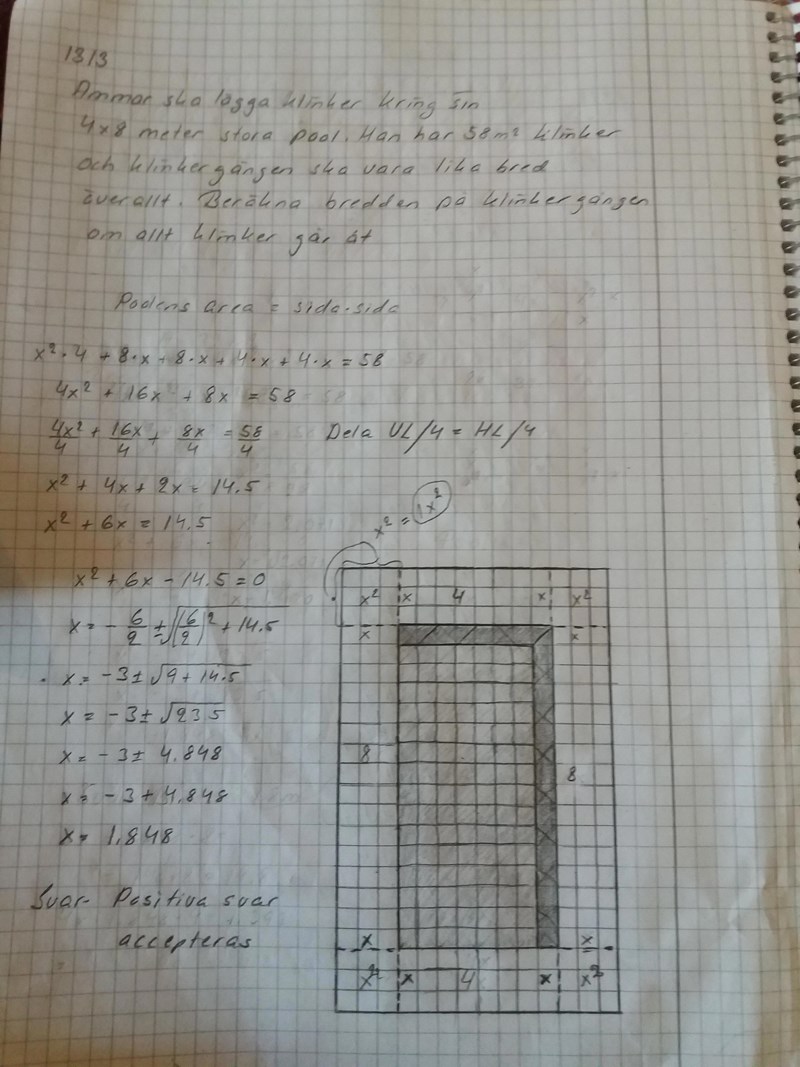 13/3
Ammar ska lägga klinker kring sin
4x8 meter stora pool. Han har 58 m² klinker
och klinkergången ska vara lika bred
överallt. Beräkna bredden på klinkergången
om allt klinker går åt
Poolens area = sida·sida
x²·4 + 8·x + 8·x + 4·x + 4·x = 58
4x² + 16x + 8x = 58
4x²/4 + 16x/4 + 8x/4 = 58/4 Dela VL/4 = HL/4
x² + 4x + 2x = 14.5
x² + 6x = 14.5
x² = 1x²
x² + 6x - 14.5 = 0
x = - 6/2 ± √(6/2)² + 14.5
x = -3 ± √9 + 14.5
x = -3 ± √23 5
x = -3 ± 4.848
x = -3 + 4.848
x = 1.848
Svar- Positiva svar
accepteras
x² x 4 x x²
x x
8
8
x x
x² x 4 x x²